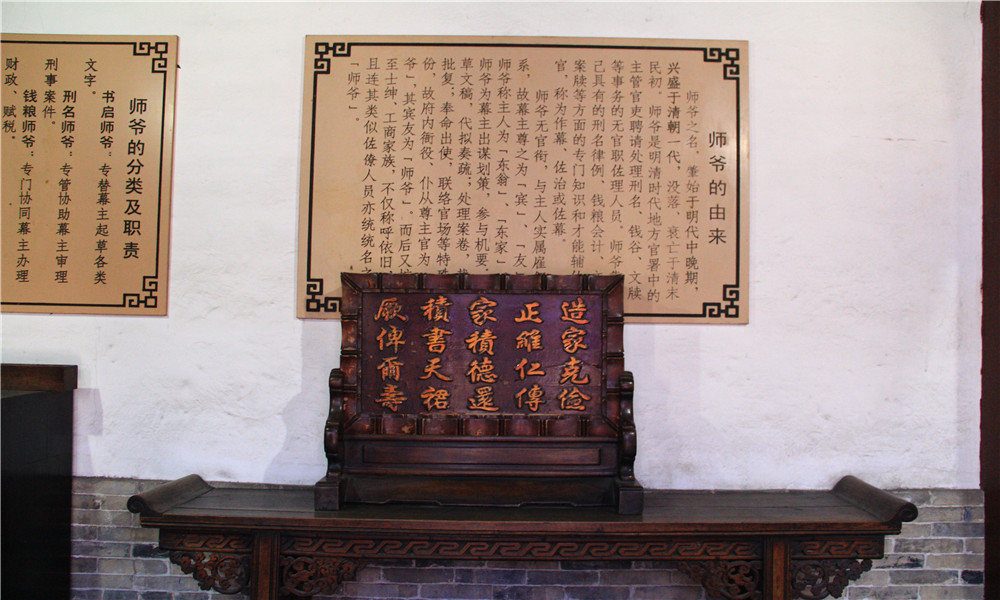 师爷的由来
师爷之名，肇始于明代中晚期，
兴盛于清朝一代，没落、衰亡于清末
民初。师爷是明清时代地方官署中的
主管官吏聘请处理刑名、钱谷、文牍
等事务的无官职佐理人员。师爷
己具有的刑名律例、钱粮会计、
案牍等方面的专门知识和才能辅
官，称为作幕、佐治或佐幕。
师爷无官衔，与主人实属雇
系，故幕主尊之为「宾」、「友
师爷称主人为「东翁」、「东家」
师爷为幕主出谋划策，参与机要，
草文稿，代拟奏疏；处理案卷，
批复；奉命出使，联络官场等特殊
份，故府内衙役、仆从尊主官为
爷」，其宾友为「师爷」。而后又
至士绅、工商家族，不仅称呼依旧
且连其类似佐僚人员亦统统名之
「师爷」。
师爷的分类及职责
书启师爷：专替幕主起草各类
文字。
刑名师爷：专管协助幕主审理
刑事案件。
钱粮师爷：专门协同幕主办理
财政、赋税。
造家克儉
正維仁傳
家積德還
積書天裙
厥俾爾壽